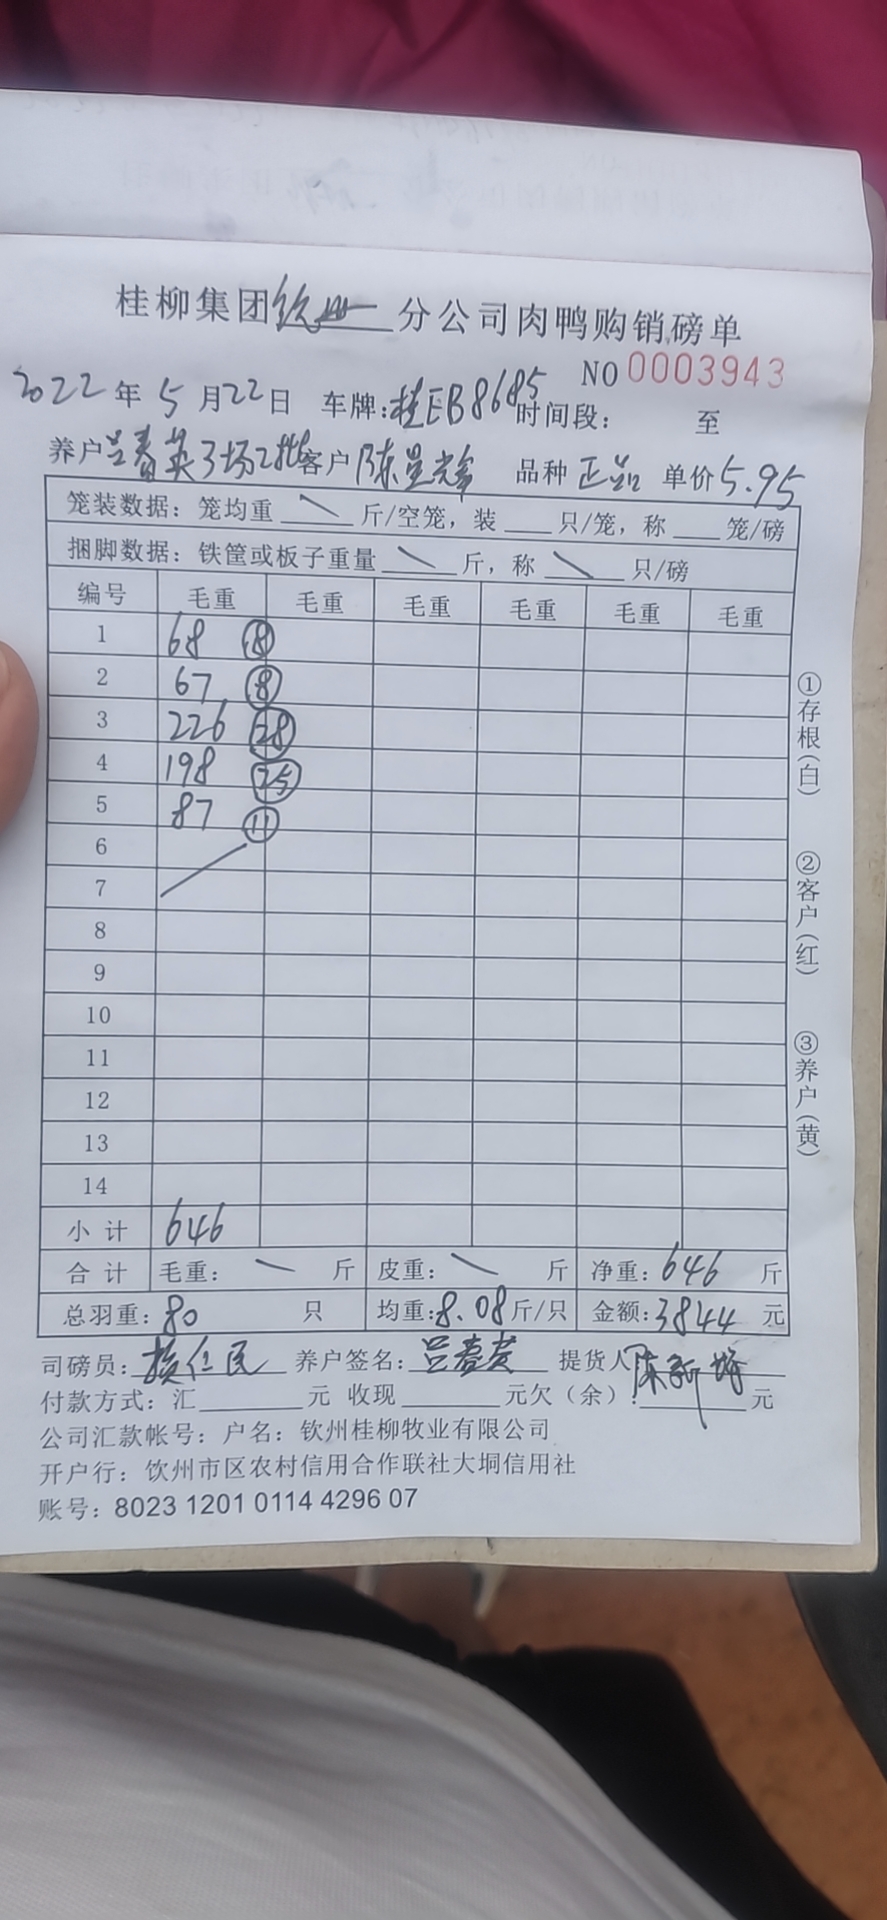 桂柳集团钦州分公司肉鸭购销磅单
NO 0003943
2022年5月22日 车牌:桂EB8685 时间段: 至
养户吕春英3场2批客户陈星 品种 正品 单价5.95
笼装数据:笼均重 斤/空笼,装 只/笼,称 笼/磅
捆脚数据:铁筐或板子重量 斤,称 只/磅
编号 毛重 毛重 毛重 毛重 毛重 毛重
1 68 ⑧
2 67 ⑧
3 226 ㉘
4 198 ㉕
5 87 ⑪
6
7
8
9
10
11
12
13
14
小计 646
合计 毛重: 斤 皮重: 斤 净重:646 斤
总羽重:80 只 均重:8.08斤/只 金额:3844 元
司磅员: 养户签名:吕春英 提货人:陈新
付款方式:汇 元 收现 元欠(余): 元
公司汇款帐号:户名:钦州桂柳牧业有限公司
开户行:钦州市区农村信用合作联社大垌信用社
账号:8023 1201 0114 4296 07
①存根(白)
②客户(红)
③养户(黄)